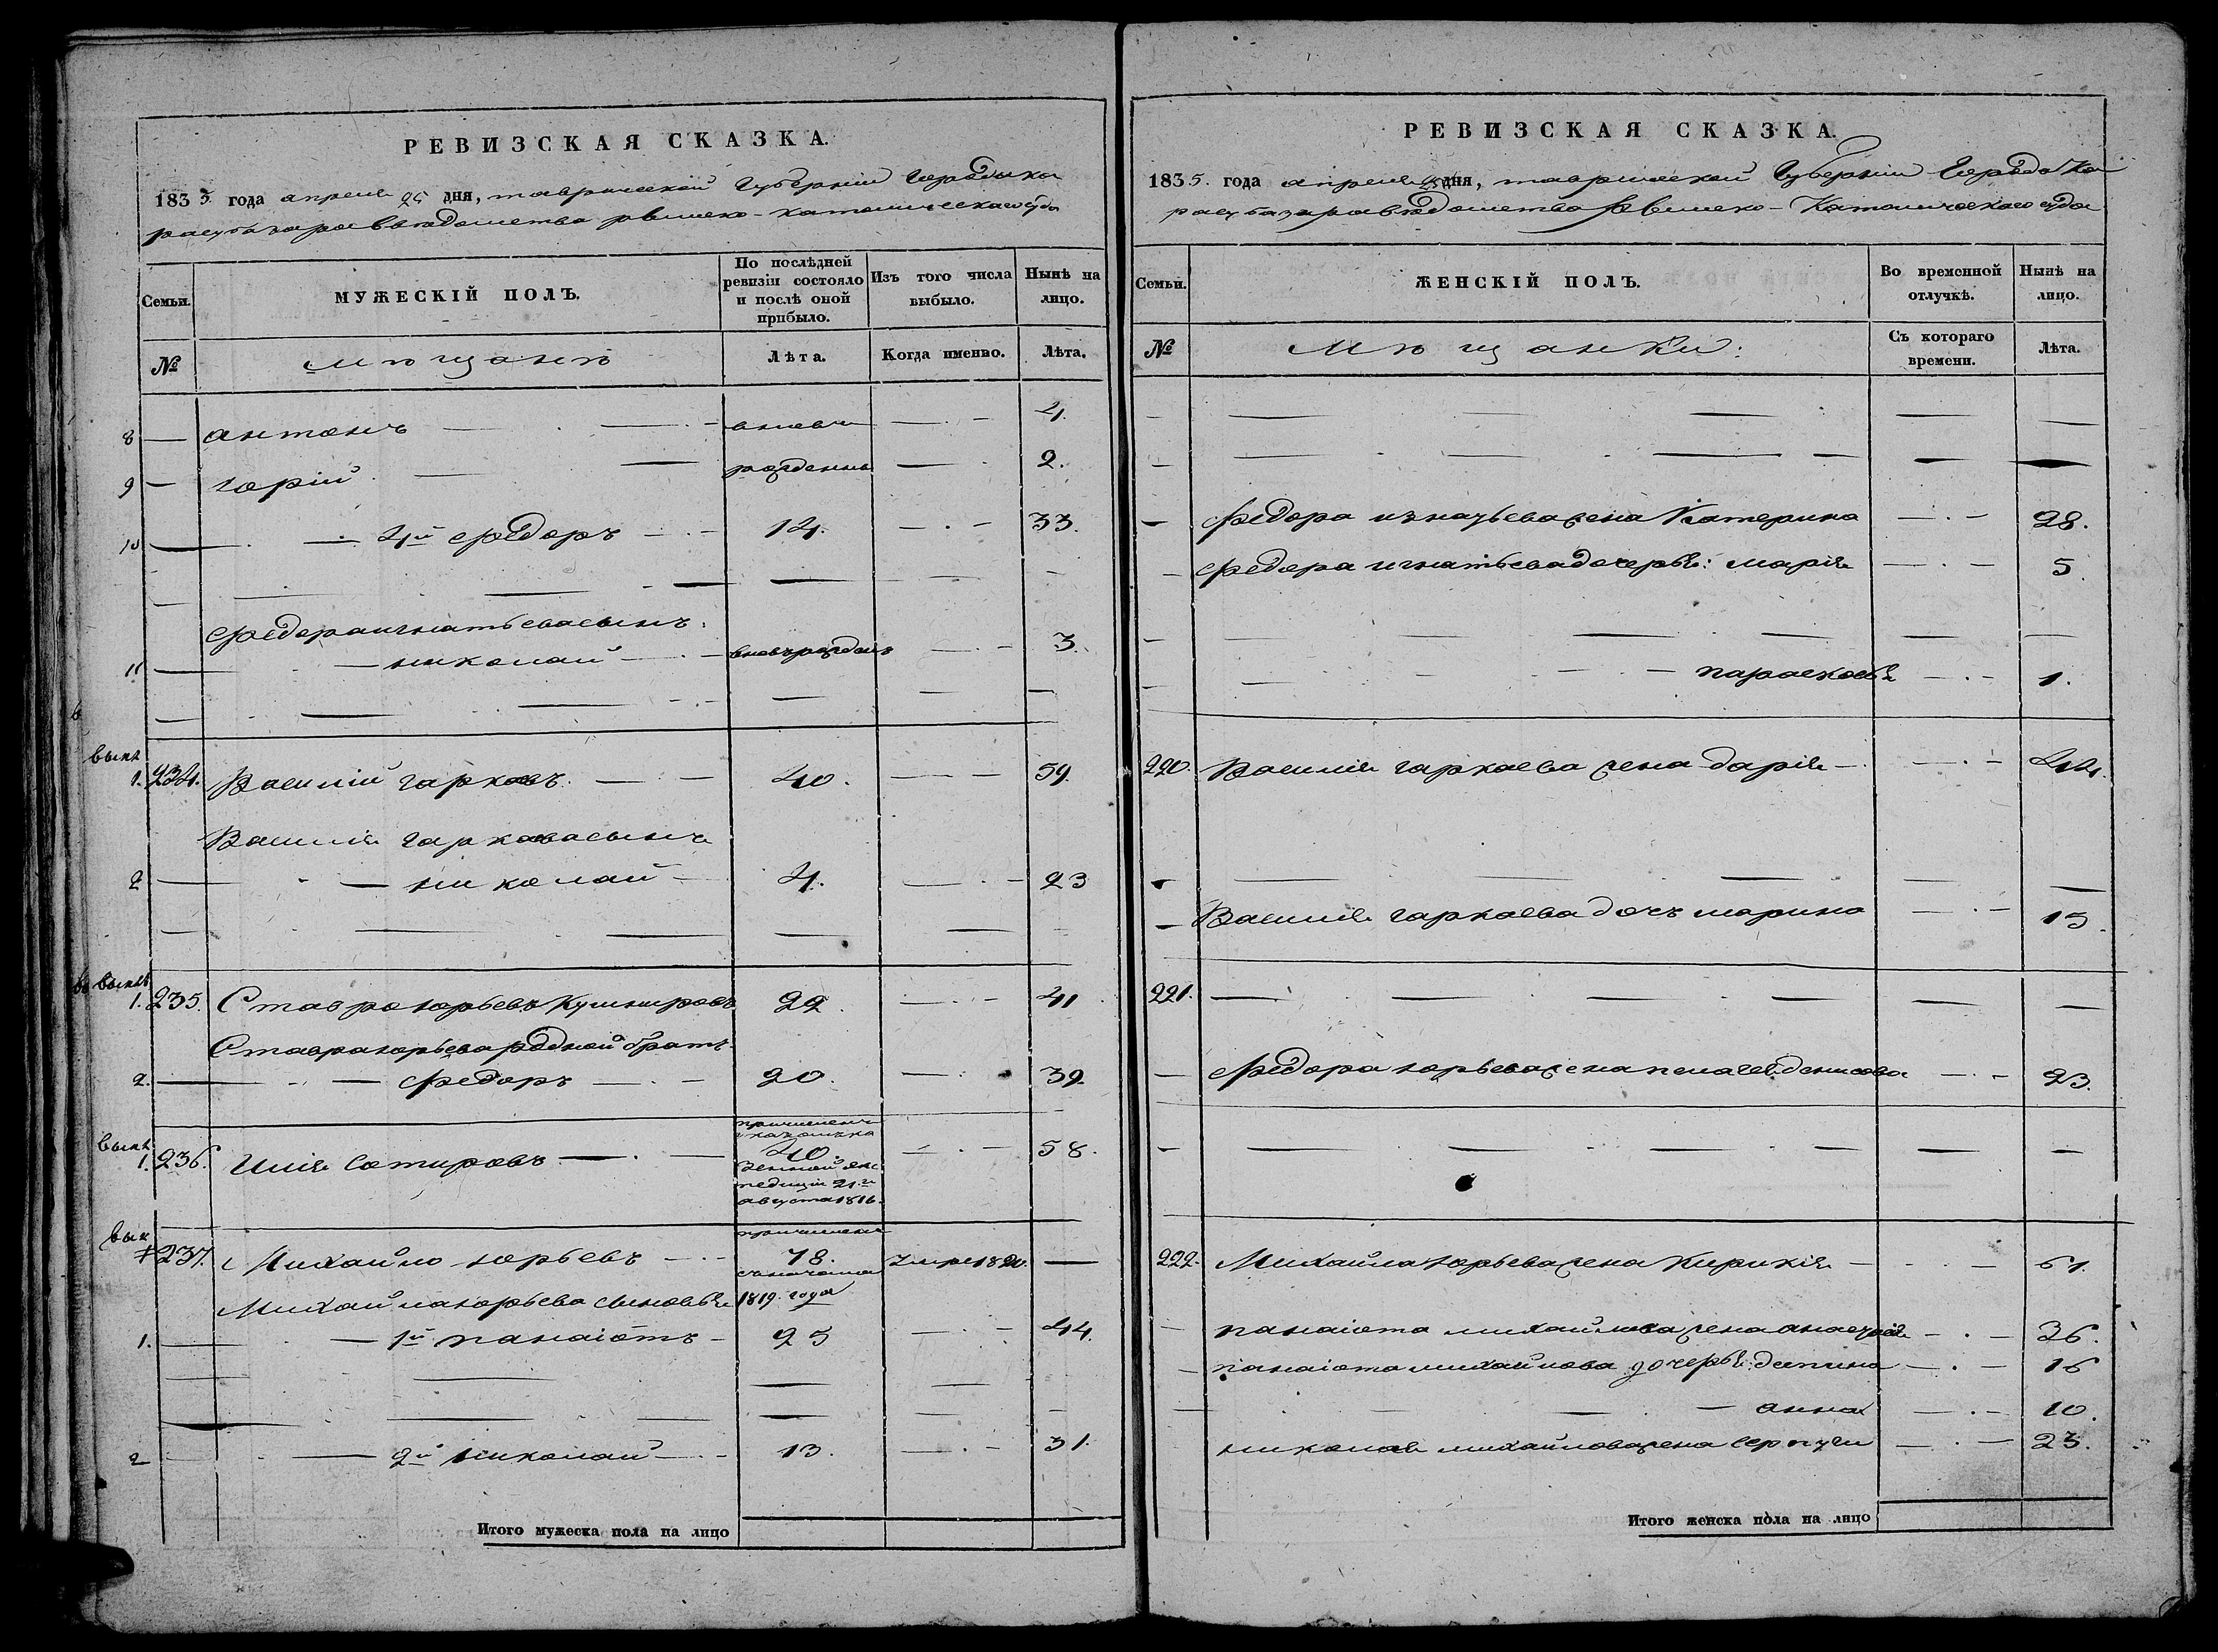 РЕВИЗСКАЯ СКАЗКА.
1835. года апреля 25 дня, таврической Губерніи Города Ка
расубазара Вѣдомства римско-католическаго суда
Семьи.
МУЖЕСКІЙ ПОЛЪ.
По послѣдней ревизіи состояло и послѣ оной прибыло.
Изъ того числа выбыло.
Нынѣ на лицо.
№
мѣщанѣ
Лѣта.
Когда именно.
Лѣта.
8 антонъ вновь 4.
9 юрій рожденны 2.
10 4й федоръ 14. 33.
федора игнатьева сынъ:
11 николай вновь рожденъ 3.
1. 234. Василій гарковъ 40. 59.
Василія гаркова сынъ
2 николай 4. 23
1. 235. Ставро юрьевъ Кушнировъ 22. 41
Ставра юрьева родной братъ
2. федоръ 20. 39.
причисленъ
1. 236. Илія Сотировъ 40. 58.
педиціи 21го
августа 1816.
причислены
237. Михайло юрьевъ 78. умре 1820.
съ начала
Михайла юрьева сыновья 1819. года
1. 1й панаіотъ 25 44.
2 2й николай 13. 31.
Итого мужеска пола на лицо
РЕВИЗСКАЯ СКАЗКА.
1835. года апреля 25 дня, таврической Губерніи Города Ка
расубазара вѣдомства Римско-Католическаго суда
Семьи.
ЖЕНСКІЙ ПОЛЪ.
Во временной отлучкѣ.
Нынѣ на лицо.
№
Мѣщанки:
Съ котораго времени.
Лѣта.
федора игнатьева жена Катерина 28.
федора игнатьева дочерья: марія 5.
парасковья 1.
220. Василія гаркаева жена дарія 44.
Василія гаркаева дочъ марина 15.
221.
федора юрьева жена пелагея денисова 23.
222. Михайла юрьева жена Кирикія 61.
панаіота михайлова жена анастасія 36.
панаіота михайлова дочерья: деспина 16
анна 10.
николая михайлова жена 23.
Итого женска пола на лицо